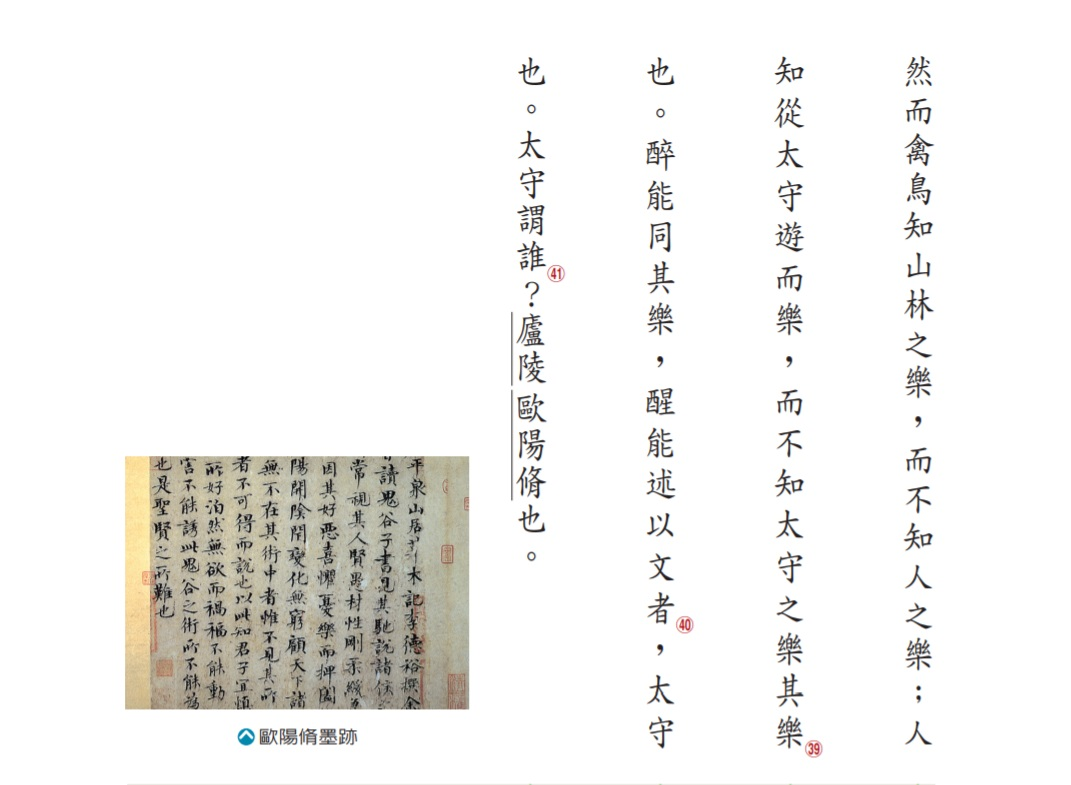 然而禽鳥知山林之樂，而不知人之樂；人
知從太守遊而樂，而不知太守之樂其樂㊴
也。醉能同其樂，醒能述以文者㊵，太守
也。太守謂誰㊶？廬陵歐陽脩也。
平泉山居木記李德裕撰余
讀鬼谷子書見其馳說諸侯
常視其人賢愚材性剛柔緩
因其好惡喜懼憂樂而捭闔
陽開陰閉變化無窮顧天下諸
無不在其術中者惟不見其所
者不可得而說也以此知君子宜慎
所好泊然無欲而禍福不能動
害不能誘此鬼谷之術所不能為
也是聖賢之所難也
歐陽脩墨跡